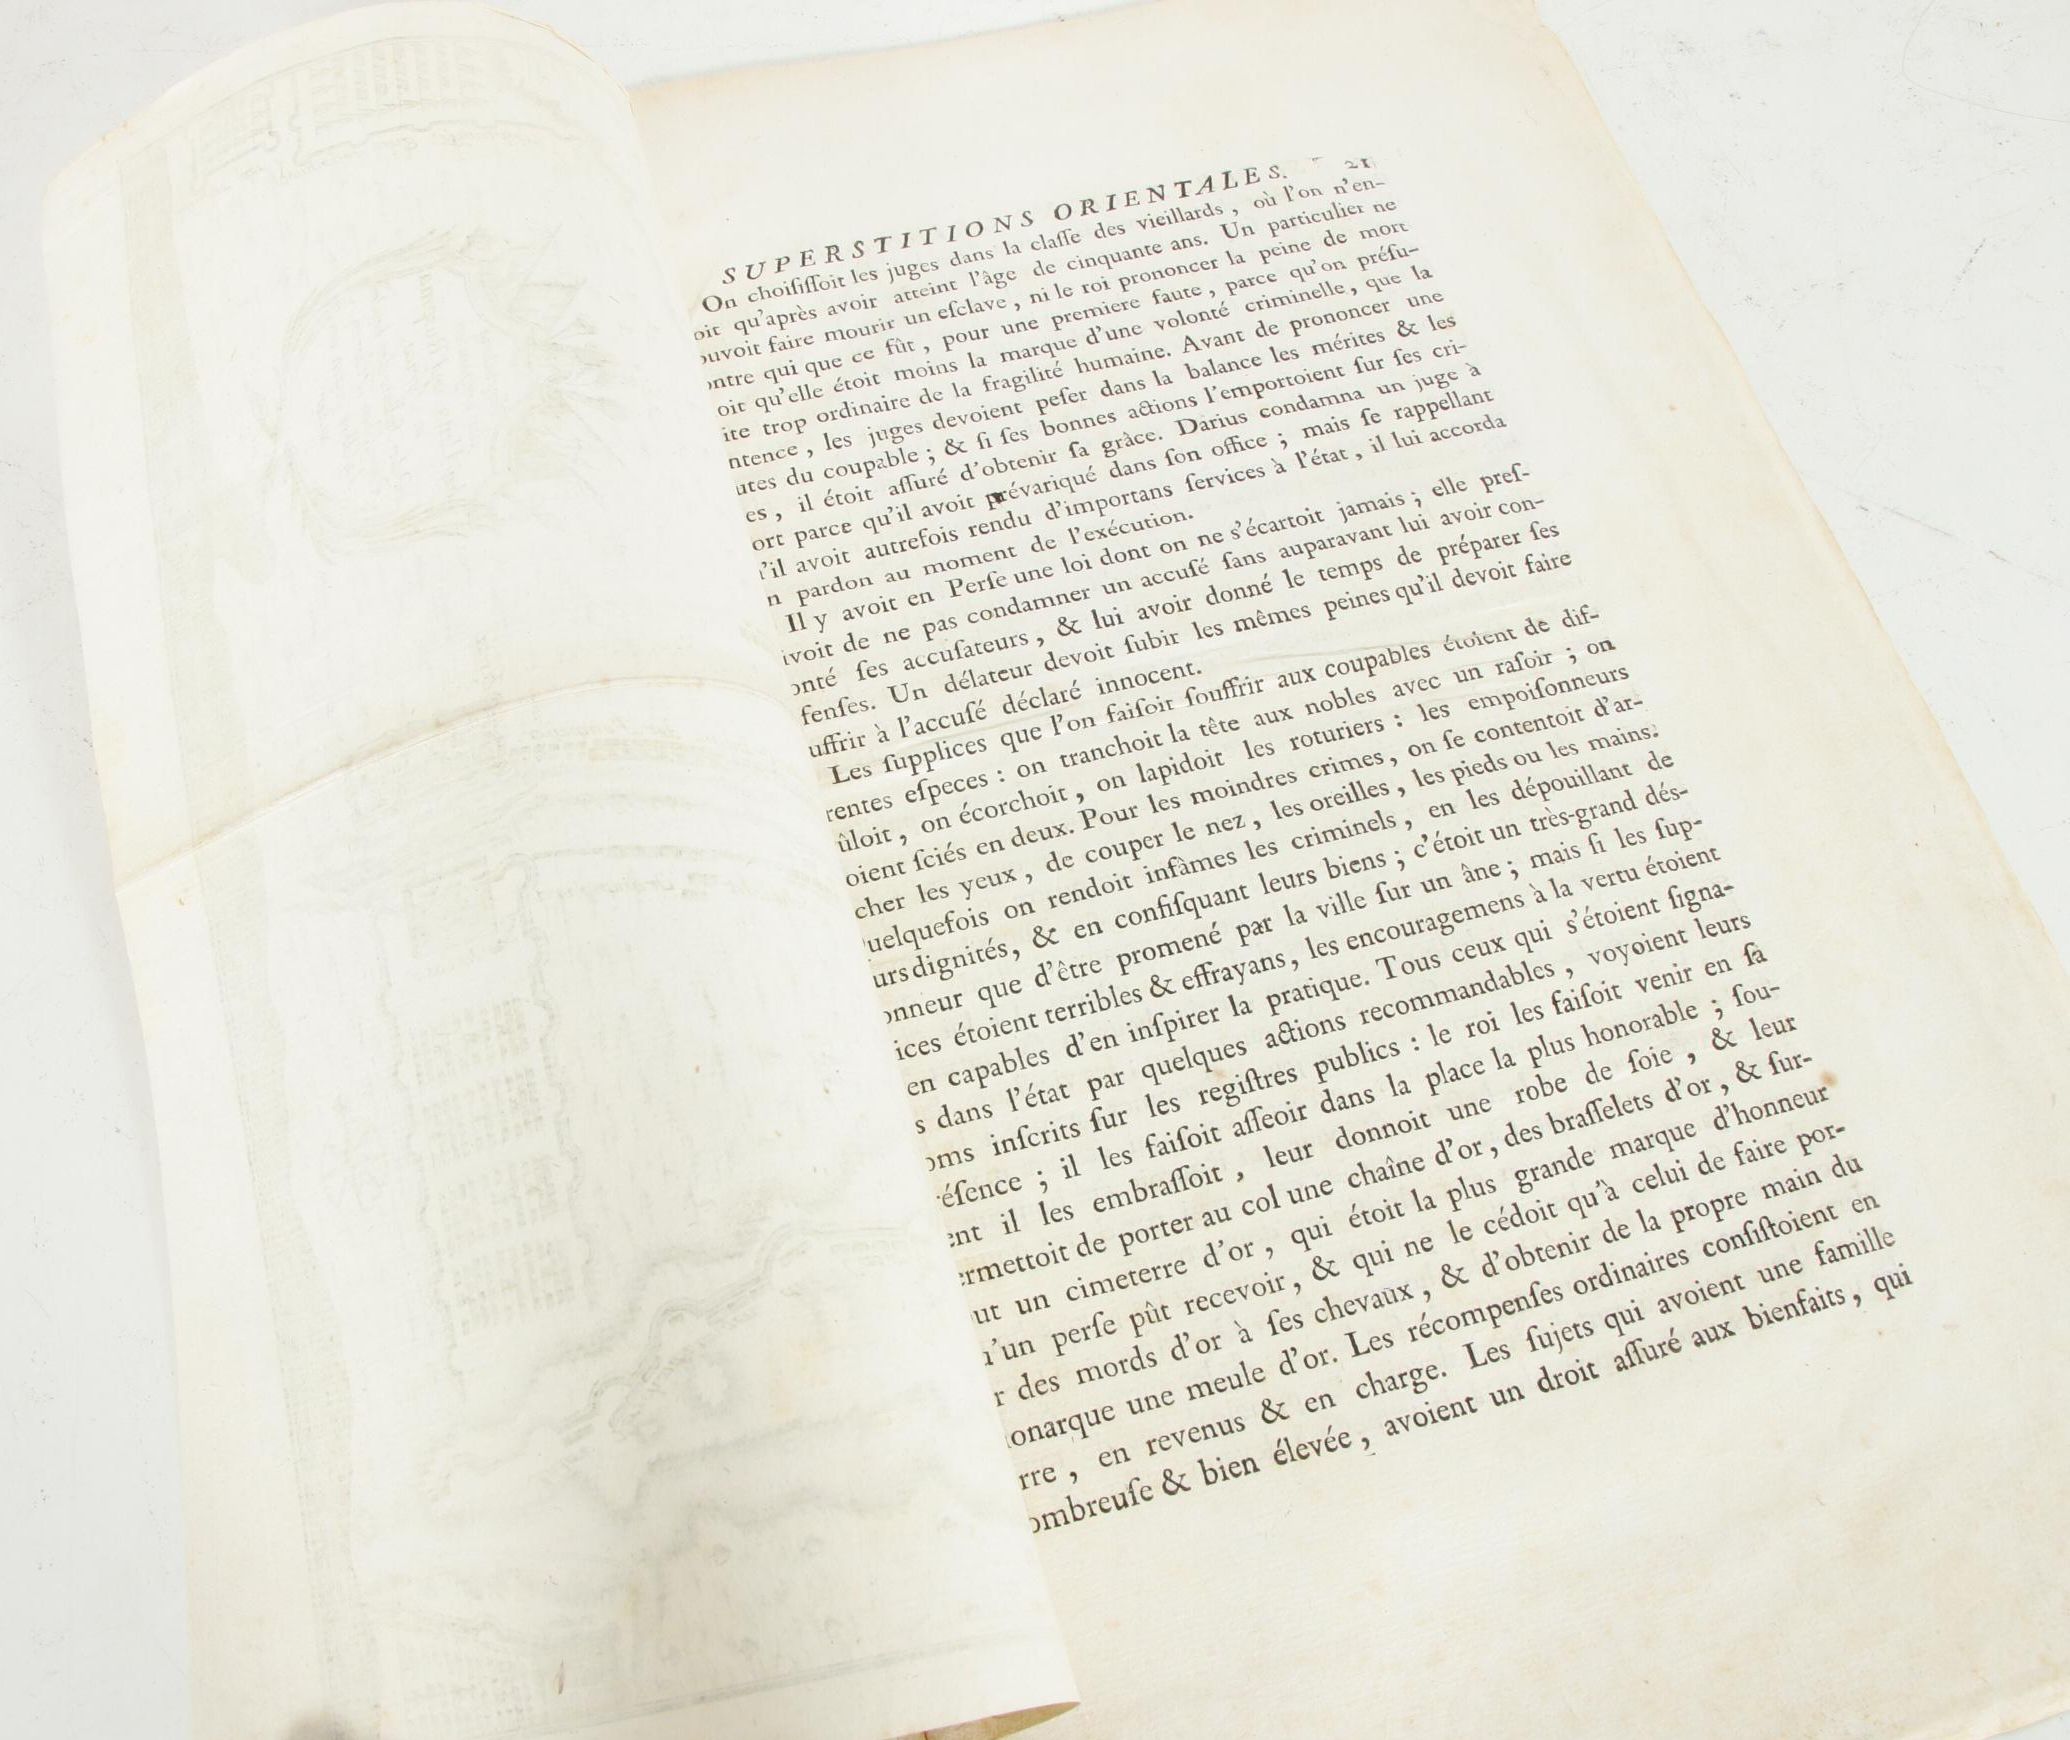 SUPERSTITIONS ORIENTALES. 21
On choiſiſſoit les juges dans la claſſe des vieillards, où l'on n'en-
oit qu'après avoir atteint l'âge de cinquante ans. Un particulier ne
ouvoit faire mourir un eſclave, ni le roi prononcer la peine de mort
ontre qui que ce fût, pour une premiere faute, parce qu'on préſu-
oit qu'elle étoit moins la marque d'une volonté criminelle, que la
ite trop ordinaire de la fragilité humaine. Avant de prononcer une
ntence, les juges devoient peſer dans la balance les mérites & les
utes du coupable; & ſi ſes bonnes actions l'emportoient ſur ſes cri-
es, il étoit aſſuré d'obtenir ſa gràce. Darius condamna un juge à
ort parce qu'il avoit prévariqué dans ſon office; mais ſe rappellant
'il avoit autrefois rendu d'importans ſervices à l'état, il lui accorda
n pardon au moment de l'exécution.
Il y avoit en Perſe une loi dont on ne s'écartoit jamais; elle preſ-
ivoit de ne pas condamner un accuſé ſans auparavant lui avoir con-
onté ſes accuſateurs, & lui avoir donné le temps de préparer ſes
fenſes. Un délateur devoit ſubir les mêmes peines qu'il devoit faire
uffrir à l'accuſé déclaré innocent.
Les ſupplices que l'on faiſoit ſouffrir aux coupables étoient de dif-
rentes eſpeces: on tranchoit la tête aux nobles avec un raſoir; on
ûloit, on écorchoit, on lapidoit les roturiers: les empoiſonneurs
oient ſciés en deux. Pour les moindres crimes, on ſe contentoit d'ar-
cher les yeux, de couper le nez, les oreilles, les pieds ou les mains.
uelquefois on rendoit infâmes les criminels, en les dépouillant de
urs dignités, & en confiſquant leurs biens; c'étoit un très-grand dés-
onneur que d'être promené par la ville ſur un âne; mais ſi les ſup-
ices étoient terribles & effrayans, les encouragemens à la vertu étoient
en capables d'en inſpirer la pratique. Tous ceux qui s'étoient ſigna-
s dans l'état par quelques actions recommandables, voyoient leurs
oms inſcrits ſur les regiſtres publics: le roi les faiſoit venir en ſa
éſence; il les faiſoit aſſeoir dans la place la plus honorable; ſou-
ent il les embraſſoit, leur donnoit une robe de ſoie, & leur
ermettoit de porter au col une chaîne d'or, des braſſelets d'or, & ſur-
ut un cimeterre d'or, qui étoit la plus grande marque d'honneur
u'un perſe pût recevoir, & qui ne le cédoit qu'à celui de faire por-
r des mords d'or à ſes chevaux, & d'obtenir de la propre main du
onarque une meule d'or. Les récompenſes ordinaires conſiſtoient en
rre, en revenus & en charge. Les ſujets qui avoient une famille
ombreuſe & bien élevée, avoient un droit aſſuré aux bienfaits, qui